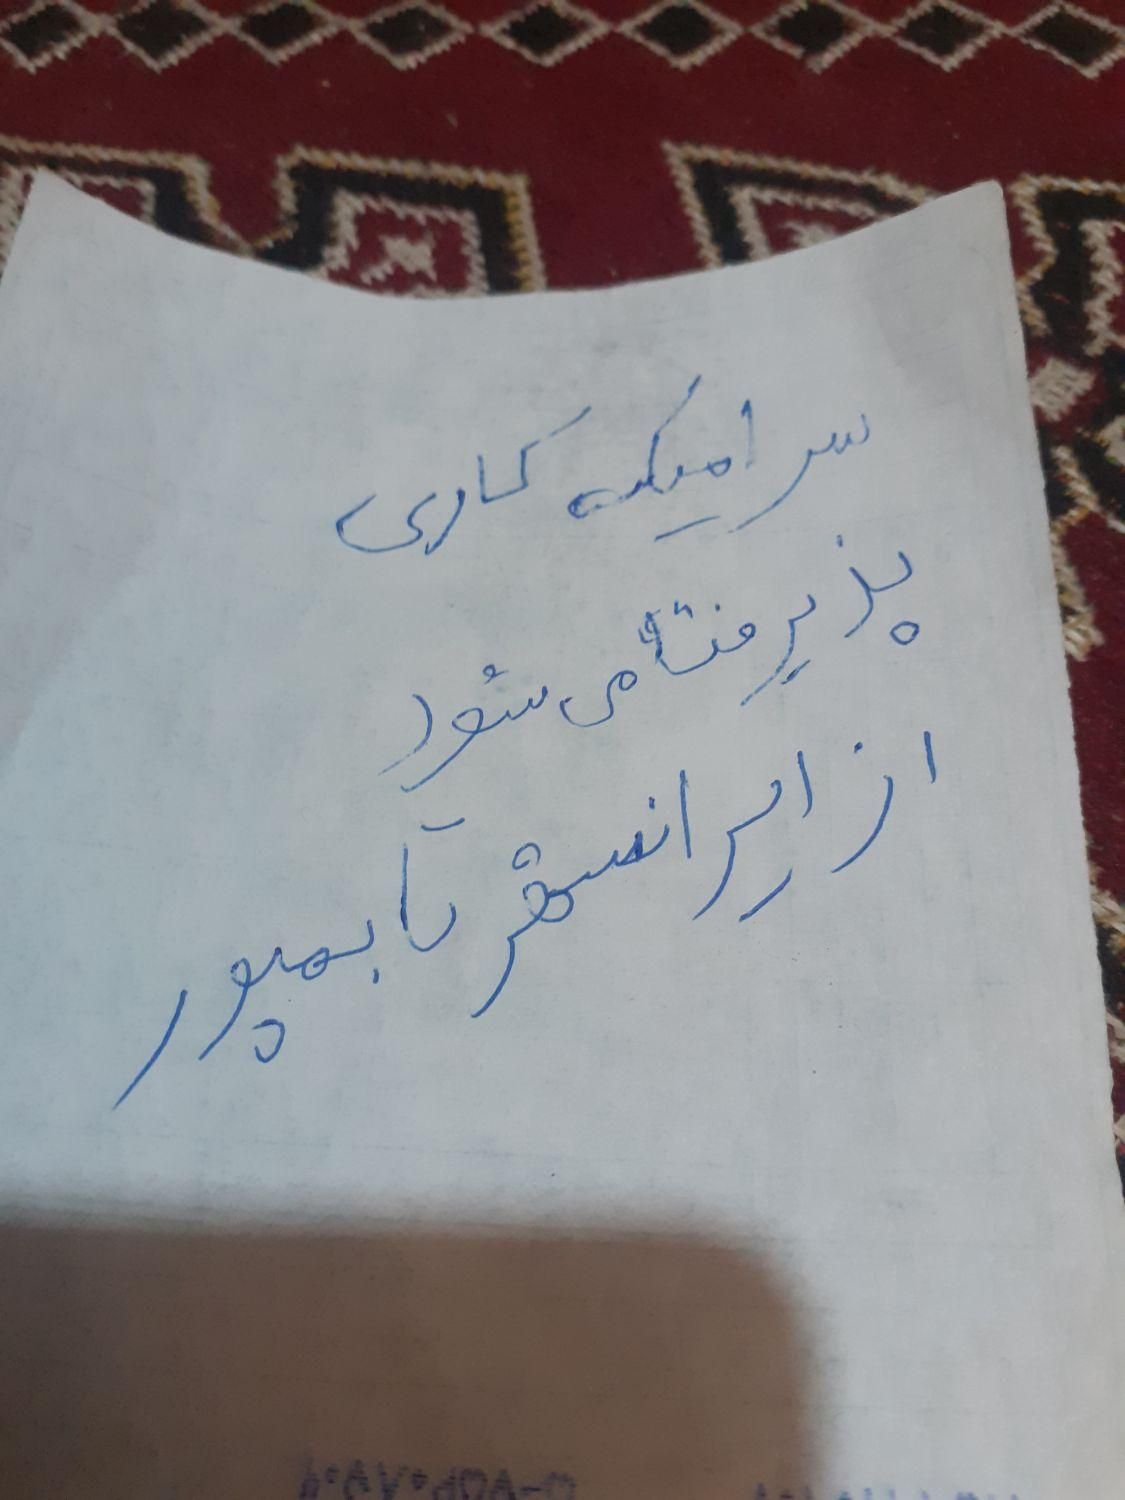 سرامیکه کاری
پذیرفتا می شود
از ایرانشهر تا بمپور